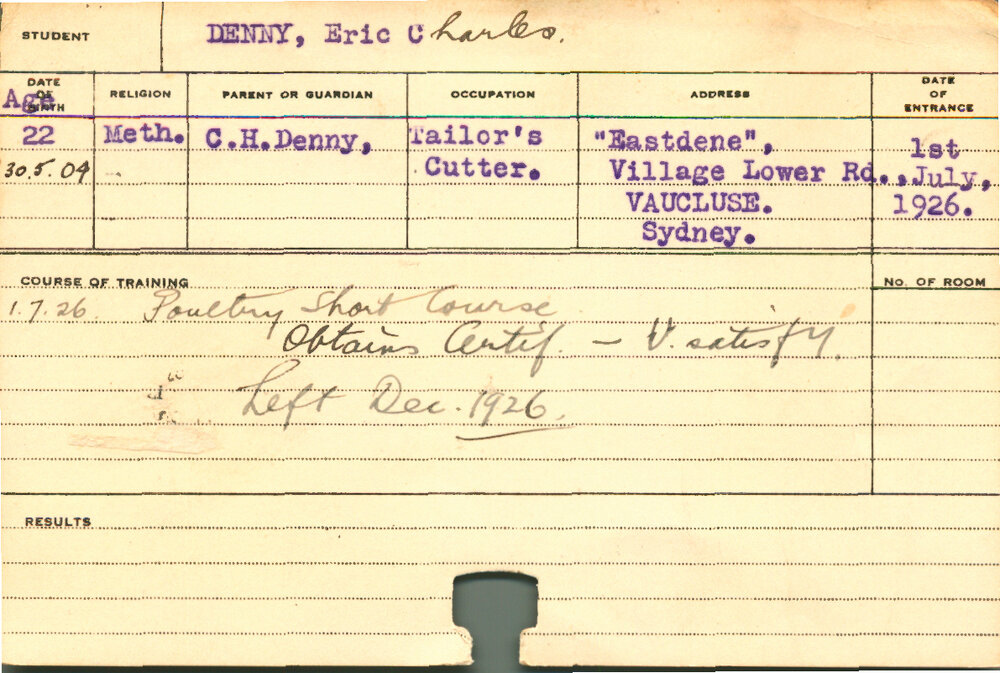 STUDENT DENNY, Eric Charles.
DATE OF BIRTH RELIGION PARENT OR GUARDIAN OCCUPATION ADDRESS DATE OF ENTRANCE
Age
22 Meth. C.H.Denny, Tailor's "Eastdene", 1st
30.5.04 Cutter. Village Lower Rd., July,
VAUCLUSE. 1926.
Sydney.
COURSE OF TRAINING No. OF ROOM
1.7.26. Poultry Short Course
Obtains Certif. — V. satisfy.
Left Dec. 1926.
RESULTS